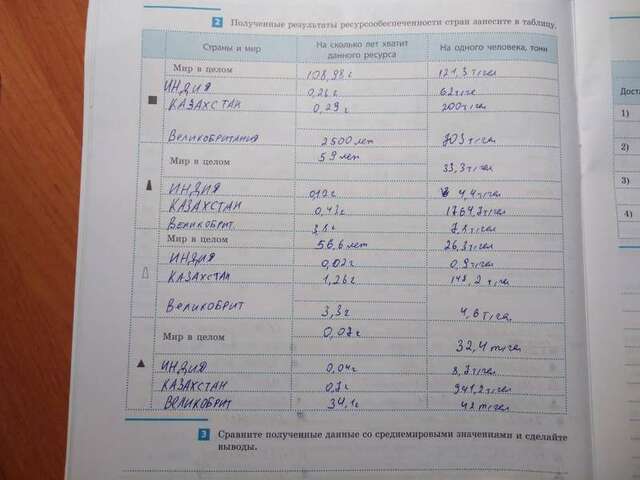 2 Полученные результаты ресурсообеспеченности стран занесите в таблицу.
Страны и мир На сколько лет хватит данного ресурса На одного человека, тонн
Мир в целом 108,98г 121,3т/чел
ИНДИЯ 0,26г 62т/че
КАЗАХСТАН 0,29г 200т/чел
ВЕЛИКОБРИТАНИЯ 2500 лет 703т/чел
Мир в целом 59 лет 33,3т/чел
ИНДИЯ 4,4т/чел
КАЗАХСТАН 0,43г 1764,7т/чел
ВЕЛИКОБРИТ. 3,8г 7,8т/чел
Мир в целом 56,6 лет 26,3т/чел
ИНДИЯ 0,02г 0,9т/чел
КАЗАХСТАН 1,26г 148,2т/чел
ВЕЛИКОБРИТ 3,3г 4,6т/чел
Мир в целом 0,07г 32,4т/чел
ИНДИЯ 0,04г 8,7т/чел
КАЗАХСТАН 0,7г 941,2т/чел
ВЕЛИКОБРИТ 34,1г 42т/чел
3 Сравните полученные данные со среднемировыми значениями и сделайте
выводы.
Доста
1)
2)
3)
4)